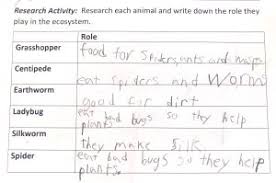 Research Activity: Research each animal and write down the role they
play in the ecosystem.
Role
Grasshopper
food for Spiders, ants and
Centipede
eat spiders and Worm
Earthworm
good for dirt
Ladybug
eat bad bugs so they help
plants
Silkworm
they make Silk
Spider
eat bad bugs so they help
plants.